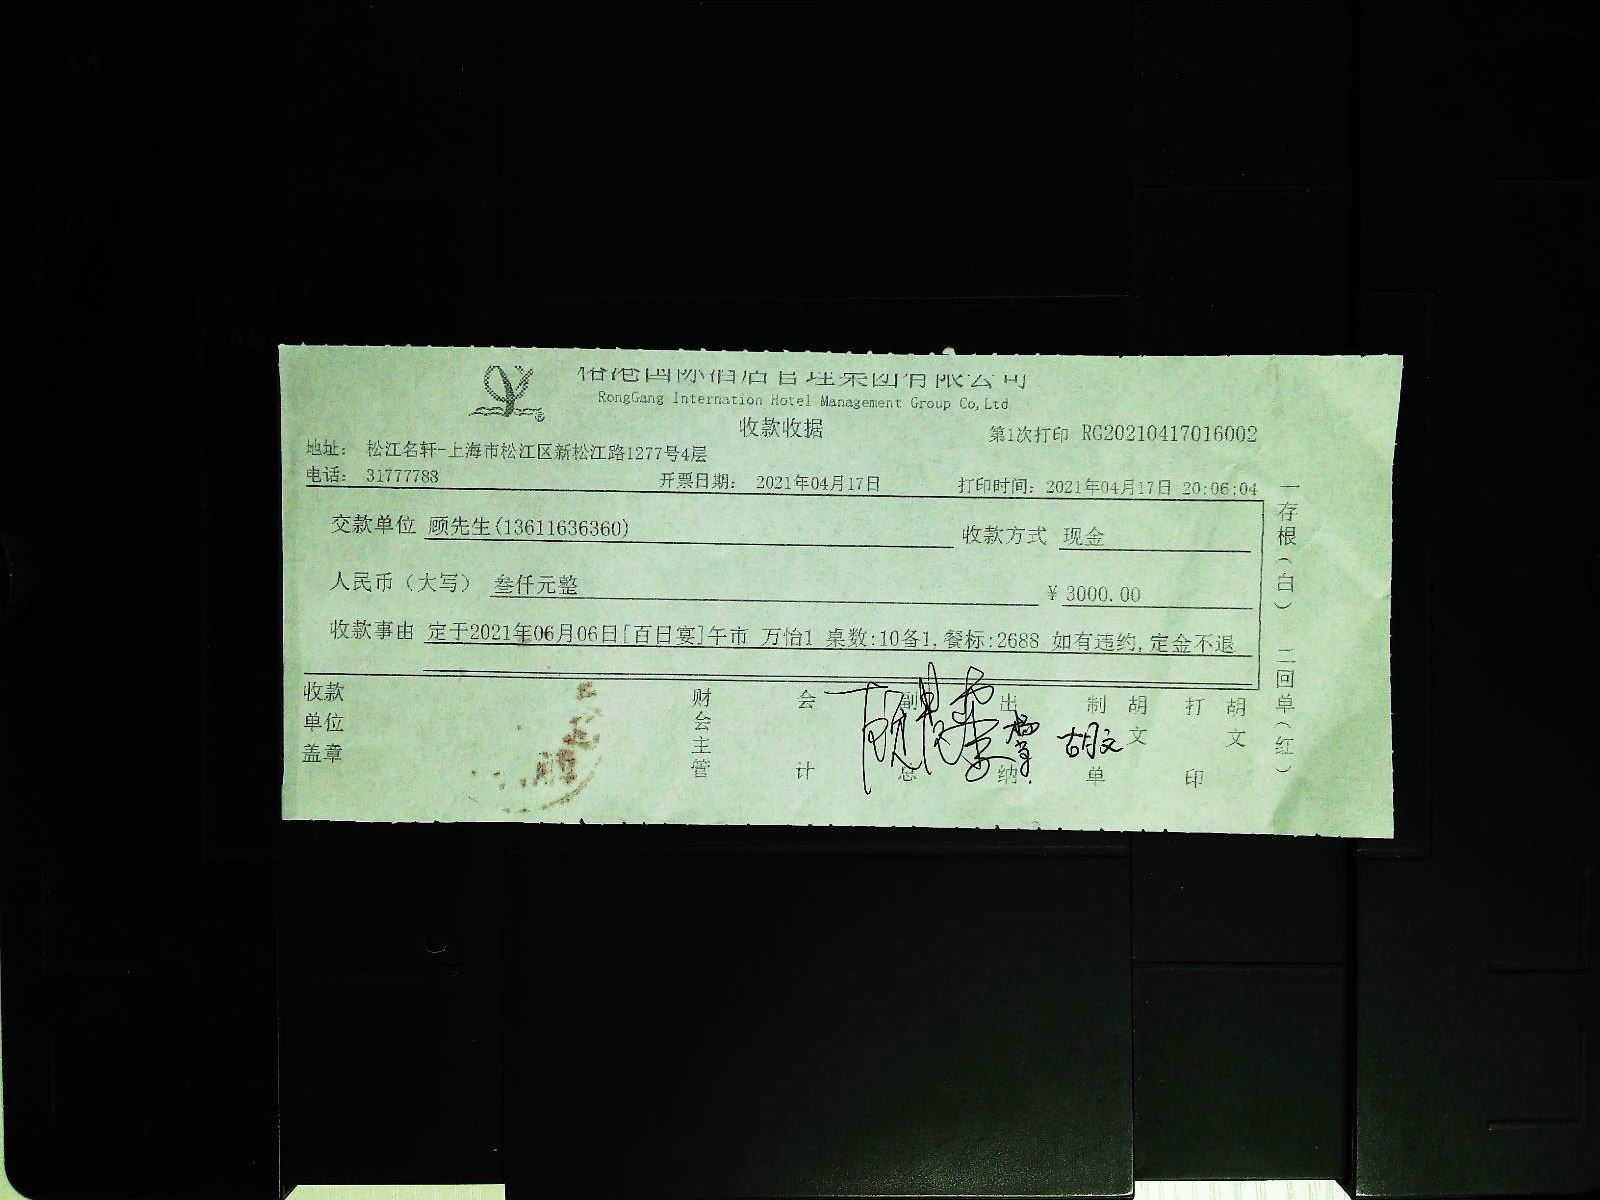 榕港国际酒店管理集团有限公司
RongGang Internation Hotel Management Group Co,Ltd
收款收据
第1次打印 RG20210417016002
地址: 松江名轩-上海市松江区新松江路1277号4层
电话: 31777788 开票日期: 2021年04月17日 打印时间: 2021年04月17日 20:06:04
交款单位 顾先生(13611636360) 收款方式 现金
人民币（大写） 叁仟元整 ¥ 3000.00
收款事由 定于2021年06月06日[百日宴]午市 万怡1 桌数:10备1,餐标:2688 如有违约,定金不退
收款单位盖章 财会主管 会计 副总 出纳 制单 胡文 打印 胡文
胡文
一存根(白) 二回单(红)